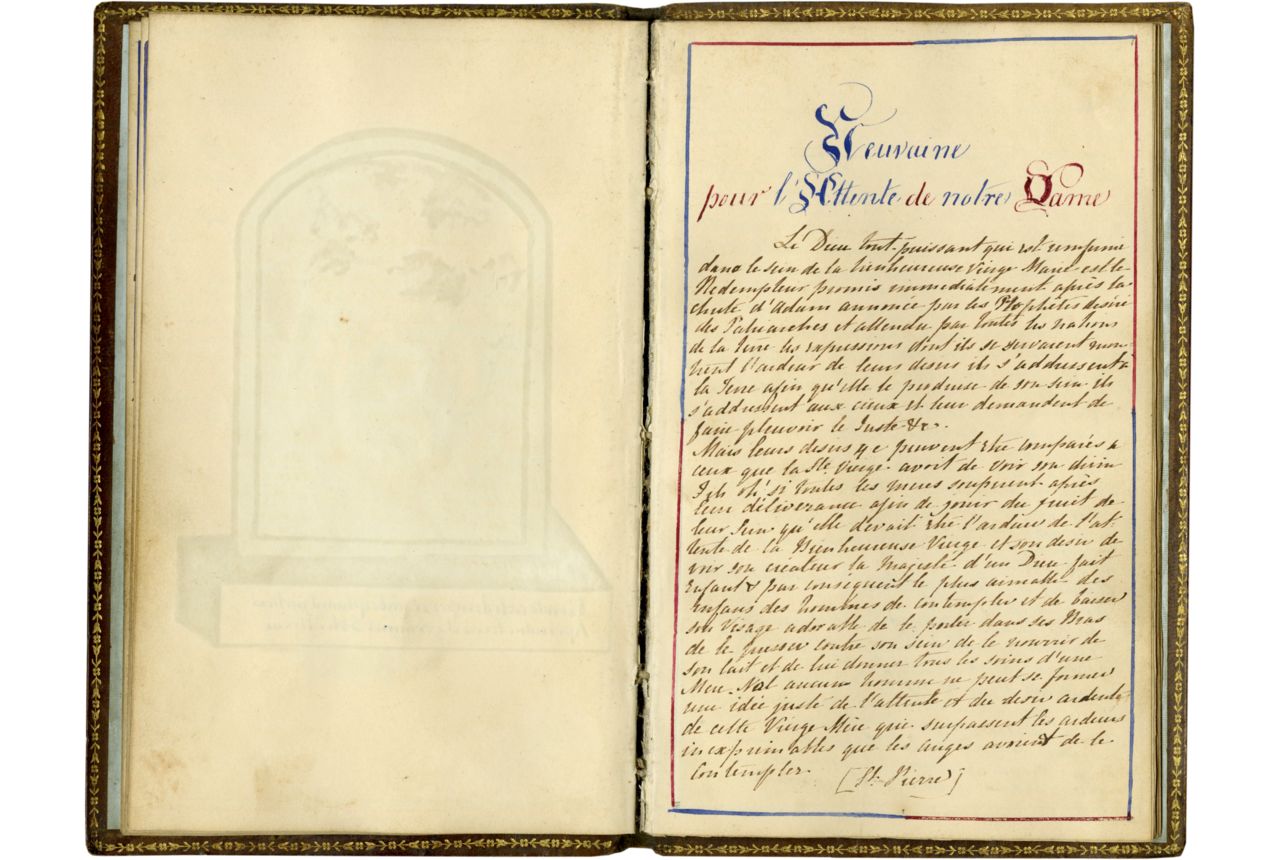 Neuvaine
pour l'Attente de notre Dame
Le Dieu tout-puissant qui est renfermé
dans le sein de la bienheureuse Vierge Marie est le
Redempteur promis immediatement après la
chute d'Adam annoncé par les Prophètes desiré
des Patriarches et attendu par toutes les nations
de la terre les expressions dont ils se servaient mon-
trent l'ardeur de leurs desirs ils s'addressent à
la Terre afin qu'elle le produise de son sein ils
s'addressent aux cieux et leur demandent de
faire pleuvoir le Juste &c.
Mais leurs desirs ne peuvent être comparés a
ceux que la Ste Vierge avoit de voir son divin
Fils oh! si toutes les meres soupirent après
leur déliverance afin de jouir du fruit de
leur sein qu'elle devait être l'ardeur de l'at-
tente de la Bienheureuse Vierge et son desir de
voir son créateur la Majesté d'un Dieu fait
Enfant & par consequent le plus aimable des
Enfans des hommes de contempler et de baiser
son visage adorable de le porter dans ses Bras
de le presser contre son sein de le nourrir de
son lait et de lui donner tous les soins d'une
Mere. aucun homme ne peut se former
une idée juste de l'attente et du desir ardente
de cette Vierge Mère que surpassent les ardeurs
inexprimables que les anges avoient de le
Contempler. [St. Pierre]